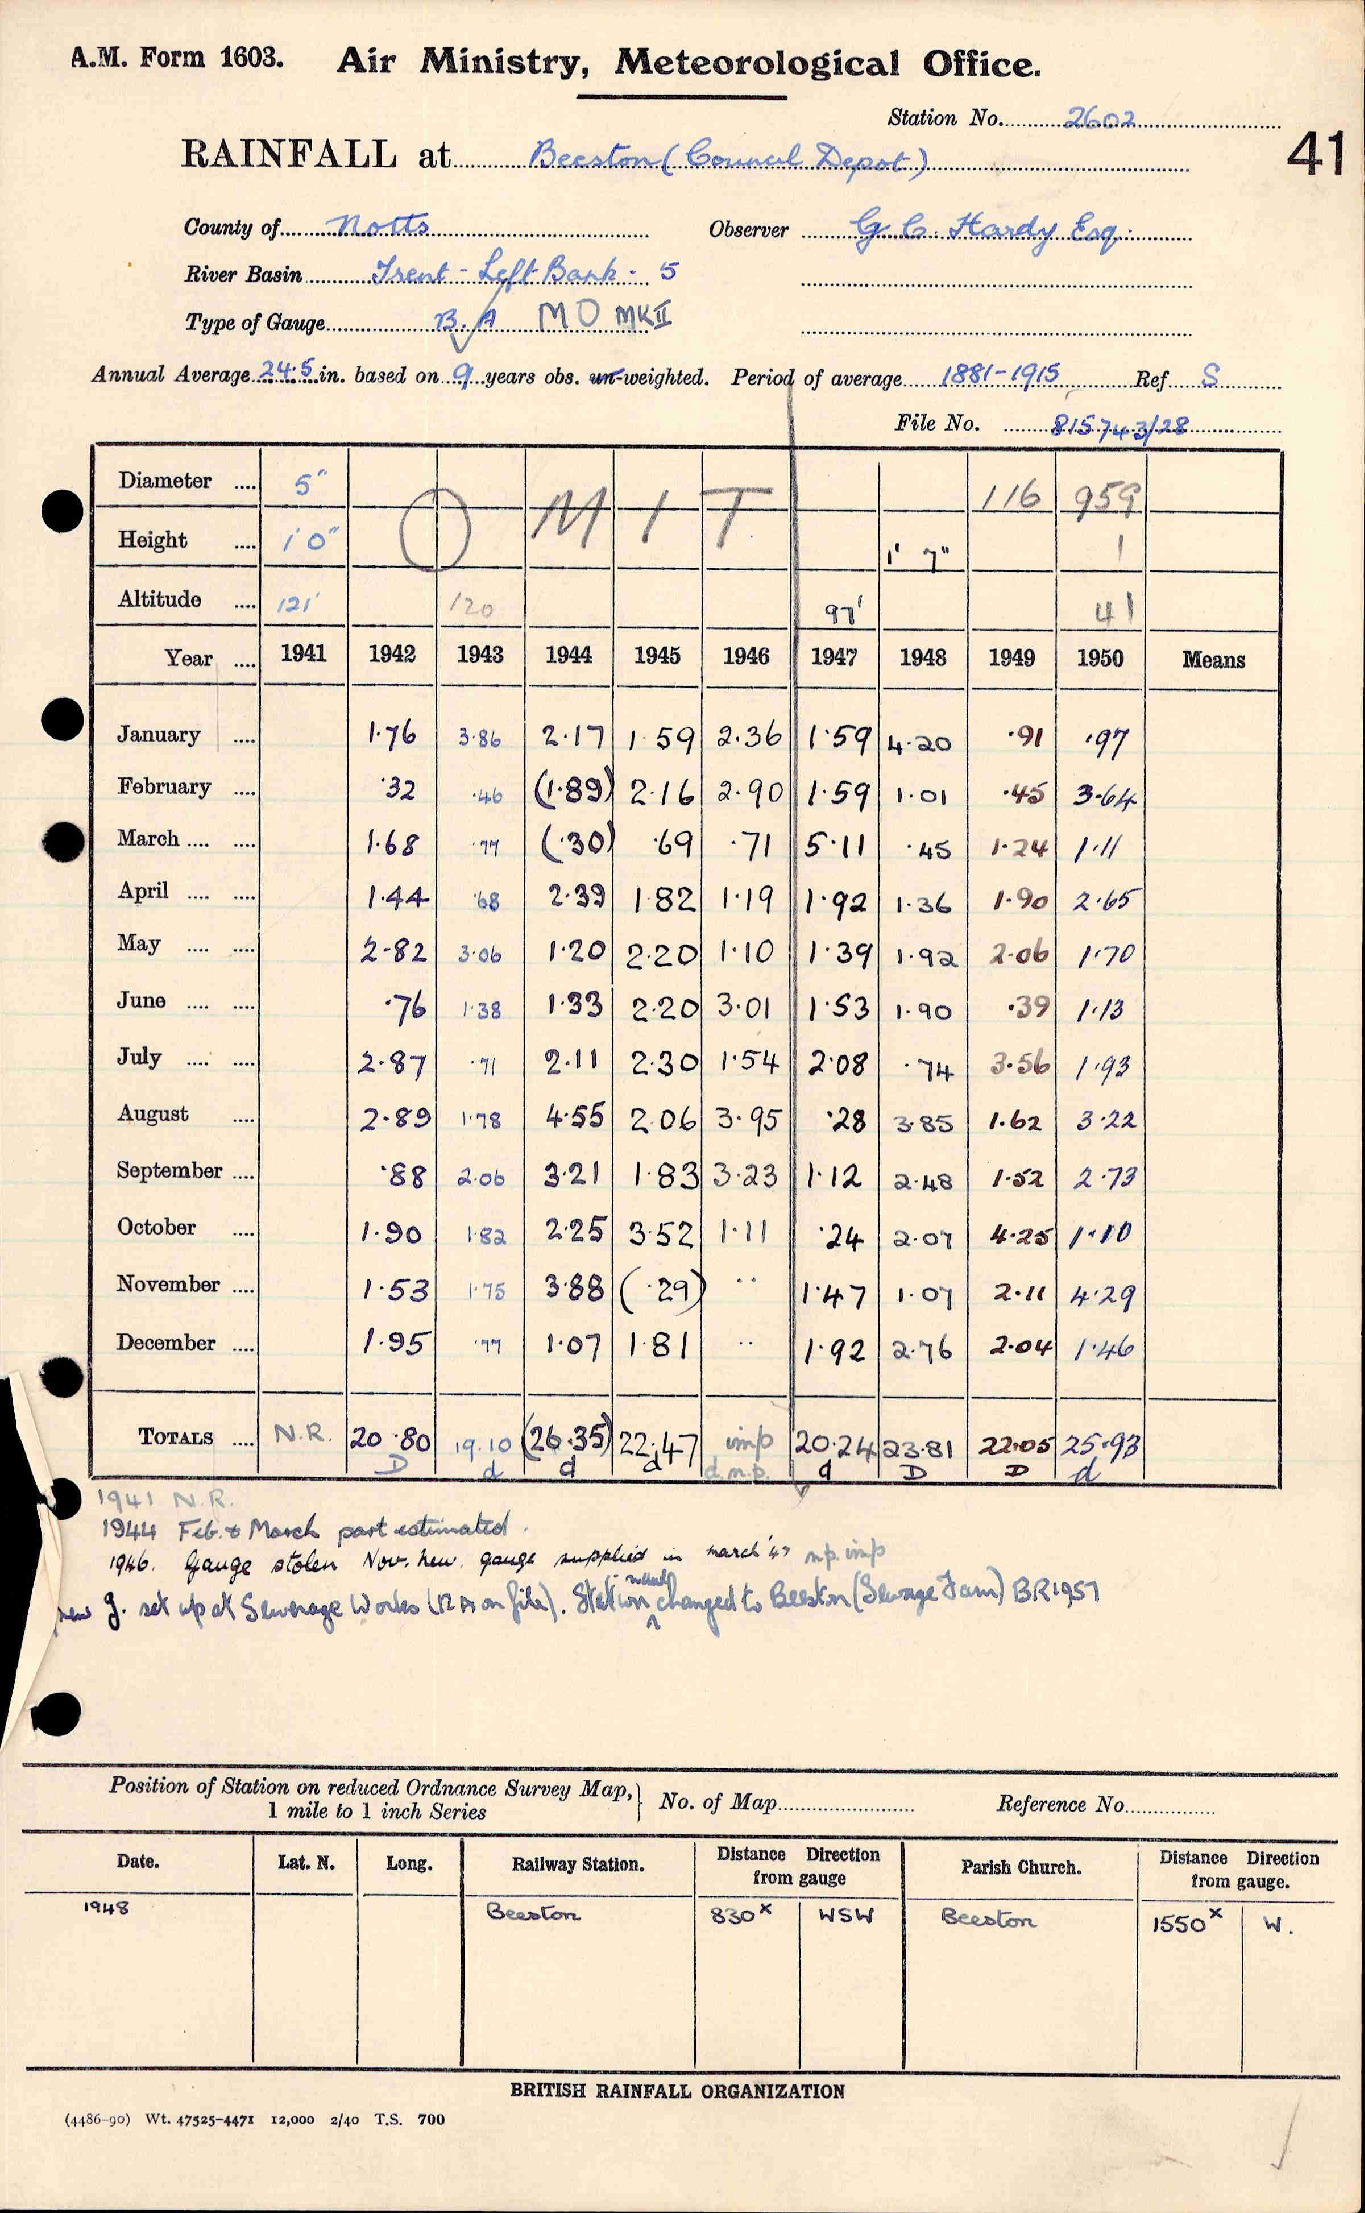 A.M. Form 1603. Air Ministry, Meteorological Office.
Station No. 2602
41
RAINFALL at Beeston (Council Depot)
County of Notts Observer G C Hardy Esq.
River Basin Trent - Left Bank - 5
Type of Gauge B.A MO MK II
Annual Average 24.5 in. based on 9 years obs. un-weighted. Period of average 1881-1915 Ref S
File No. 815743/28
Diameter .... 5" 116 959
OMIT
Height .... 1' 0" 1' 7" 1
Altitude .... 121' 120 97' 41
Year .... 1941 1942 1943 1944 1945 1946 1947 1948 1949 1950 Means
January .... 1.76 3.86 2.17 1.59 2.36 1.59 4.20 .91 .97
February .... .32 .46 (1.89) 2.16 2.90 1.59 1.01 .45 3.64
March .... .... 1.68 .77 (.30) .69 .71 5.11 .45 1.24 1.11
April .... .... 1.44 .68 2.39 1.82 1.19 1.92 1.36 1.90 2.65
May .... .... 2.82 3.06 1.20 2.20 1.10 1.39 1.92 2.06 1.70
June .... .... .76 1.38 1.33 2.20 3.01 1.53 1.90 .39 1.13
July .... .... 2.87 .71 2.11 2.30 1.54 2.08 .74 3.56 1.93
August .... 2.89 1.78 4.55 2.06 3.95 .28 3.85 1.62 3.22
September .... .88 2.06 3.21 1.83 3.23 1.12 2.48 1.52 2.73
October .... 1.90 1.82 2.25 3.52 1.11 .24 2.07 4.25 1.10
November .... 1.53 1.75 3.88 (.29) .. 1.47 1.07 2.11 4.29
December .... 1.95 .77 1.07 1.81 .. 1.92 2.76 2.04 1.46
TOTALS .... N.R. 20.80 19.10 (26.35) 22.47 imp 20.24 23.81 22.05 25.93
D d d d d.n.p. d D D d
1941 N.R.
1944 Feb. & March part estimated.
1946. Gauge stolen Nov. new gauge supplied in march '47 n.p. imp
new g. set up at Sewerage Works (12 A on file). Station changed to Beeston (Sewage Farm) BR1957
Position of Station on reduced Ordnance Survey Map,
1 mile to 1 inch Series } No. of Map Reference No.
Date. Lat. N. Long. Railway Station. Distance Direction from gauge Parish Church. Distance Direction from gauge.
1948 Beeston 830x WSW Beeston 1550x W.
BRITISH RAINFALL ORGANIZATION
(4486-90) Wt. 47525-4471 12,000 2/40 T.S. 700